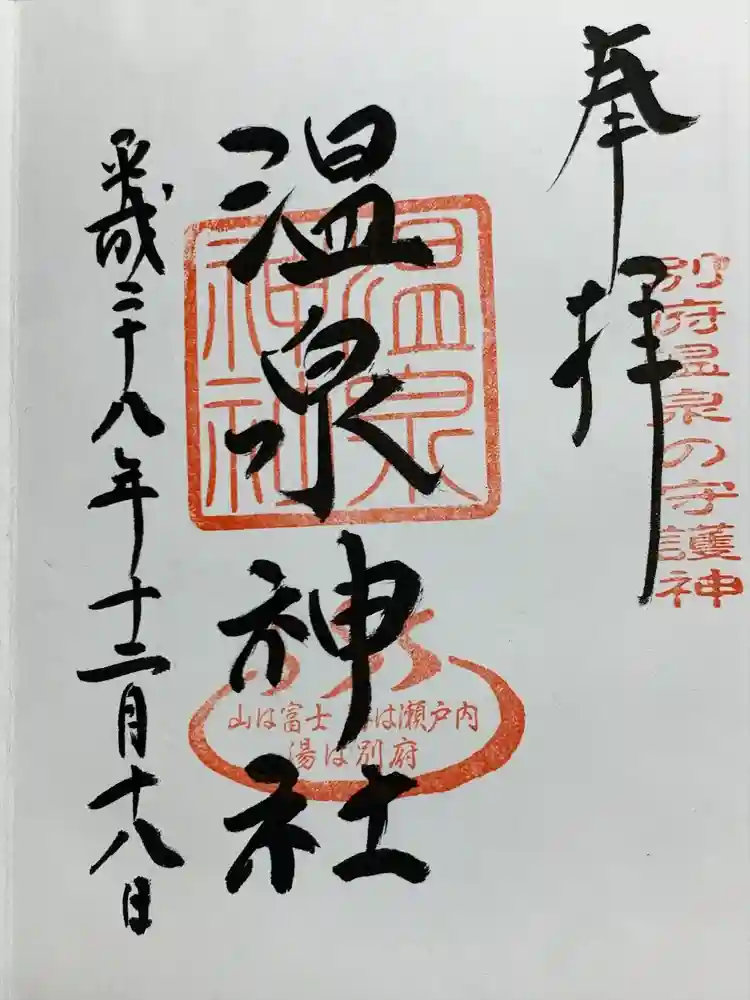 奉拝
別府温泉の守護神
温泉神社
温泉神社
山は富士 海は瀬戸内
湯は別府
平成二十八年十二月十八日